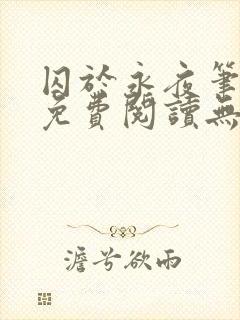 囚於永夜筆
免費閱讀無
澹兮欲雨